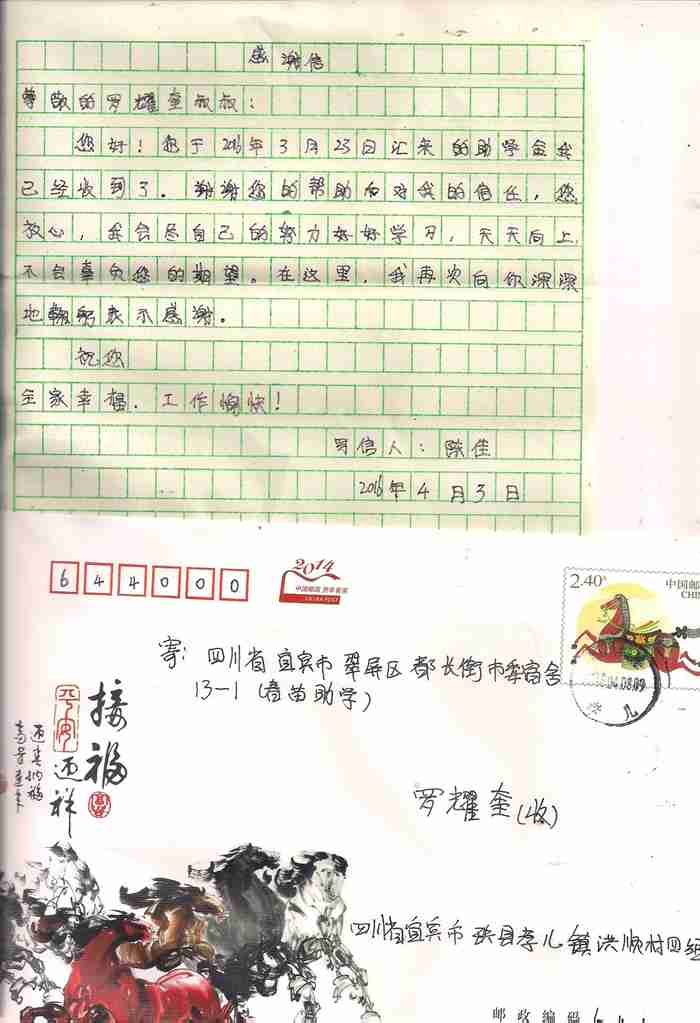 感谢信
尊敬的罗耀奎叔叔:
您好!您于2016年3月23日汇来的助学金我
已经收到了。谢谢您的帮助和对我的信任,您
放心,我会尽自己的努力好好学习,天天向上,
不会辜负您的期望。在这里,我再次向你深深
地鞠躬表示感谢。
祝您
全家幸福.工作愉快!
写信人:陈佳
2016年4月3日
644000
2014
中国邮政 贺年有奖
CHINA POST
2.40元
中国邮
CHIN
寄:四川省宜宾市翠屏区都长街市委宿舍
13-1(春苗助学)
04.08.09
孝儿
接福
平安
迎祥
罗耀奎(收)
四川省宜宾市珙县孝儿镇洪顺村四组
邮政编码